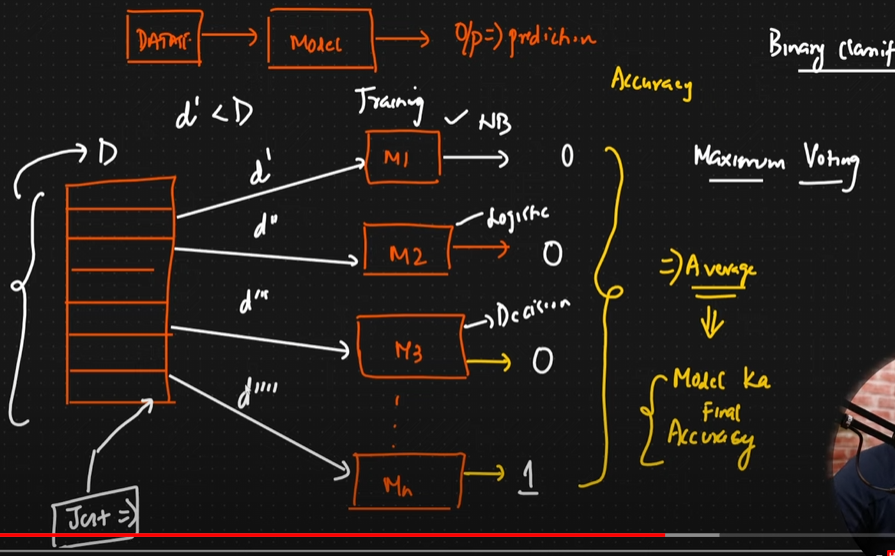 Model
O/p => prediction
Binary Classif
Accuracy
d' < D
Training
✓ NB
D
d'
M1
0
Maximum Voting
d''
Logistic
M2
0
=> Average
d'''
Decision
M3
0
Model Ka
Final
Accuracy
d''''
Mn
1